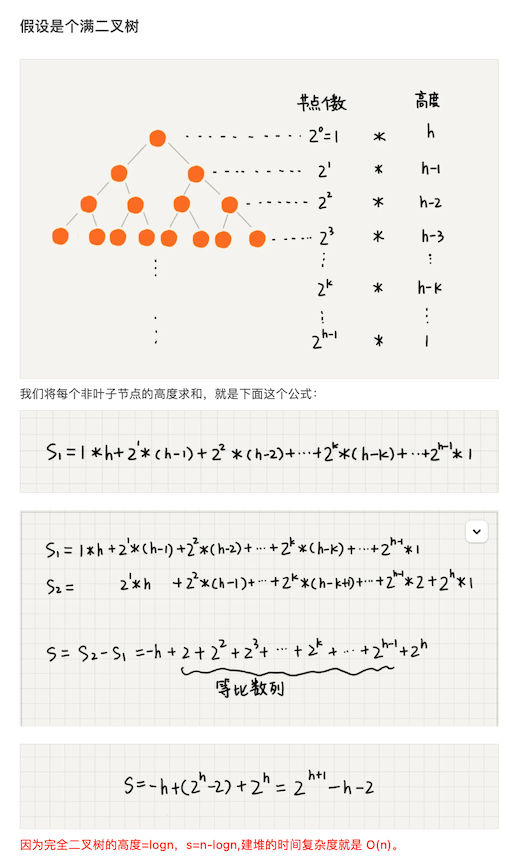 假设是个满二叉树
节点个数 高度
2⁰=1 * h
2¹ * h-1
2² * h-2
2³ * h-3
⋮ ⋮
2ᵏ * h-k
⋮ ⋮
2ʰ⁻¹ * 1
我们将每个非叶子节点的高度求和，就是下面这个公式：
S₁=1*h+2¹*(h-1)+2²*(h-2)+…+2ᵏ*(h-k)+…+2ʰ⁻¹*1
S₁=1*h+2¹*(h-1)+2²*(h-2)+…+2ᵏ*(h-k)+…+2ʰ⁻¹*1
S₂= 2¹*h +2²*(h-1)+…+2ᵏ*(h-k+1)+…+2ʰ⁻¹*2+2ʰ*1
S=S₂-S₁=-h+2+2²+2³+…+2ᵏ+…+2ʰ⁻¹+2ʰ
等比数列
S=-h+(2ʰ-2)+2ʰ=2ʰ⁺¹-h-2
因为完全二叉树的高度=logn，s=n-logn,建堆的时间复杂度就是 O(n)。